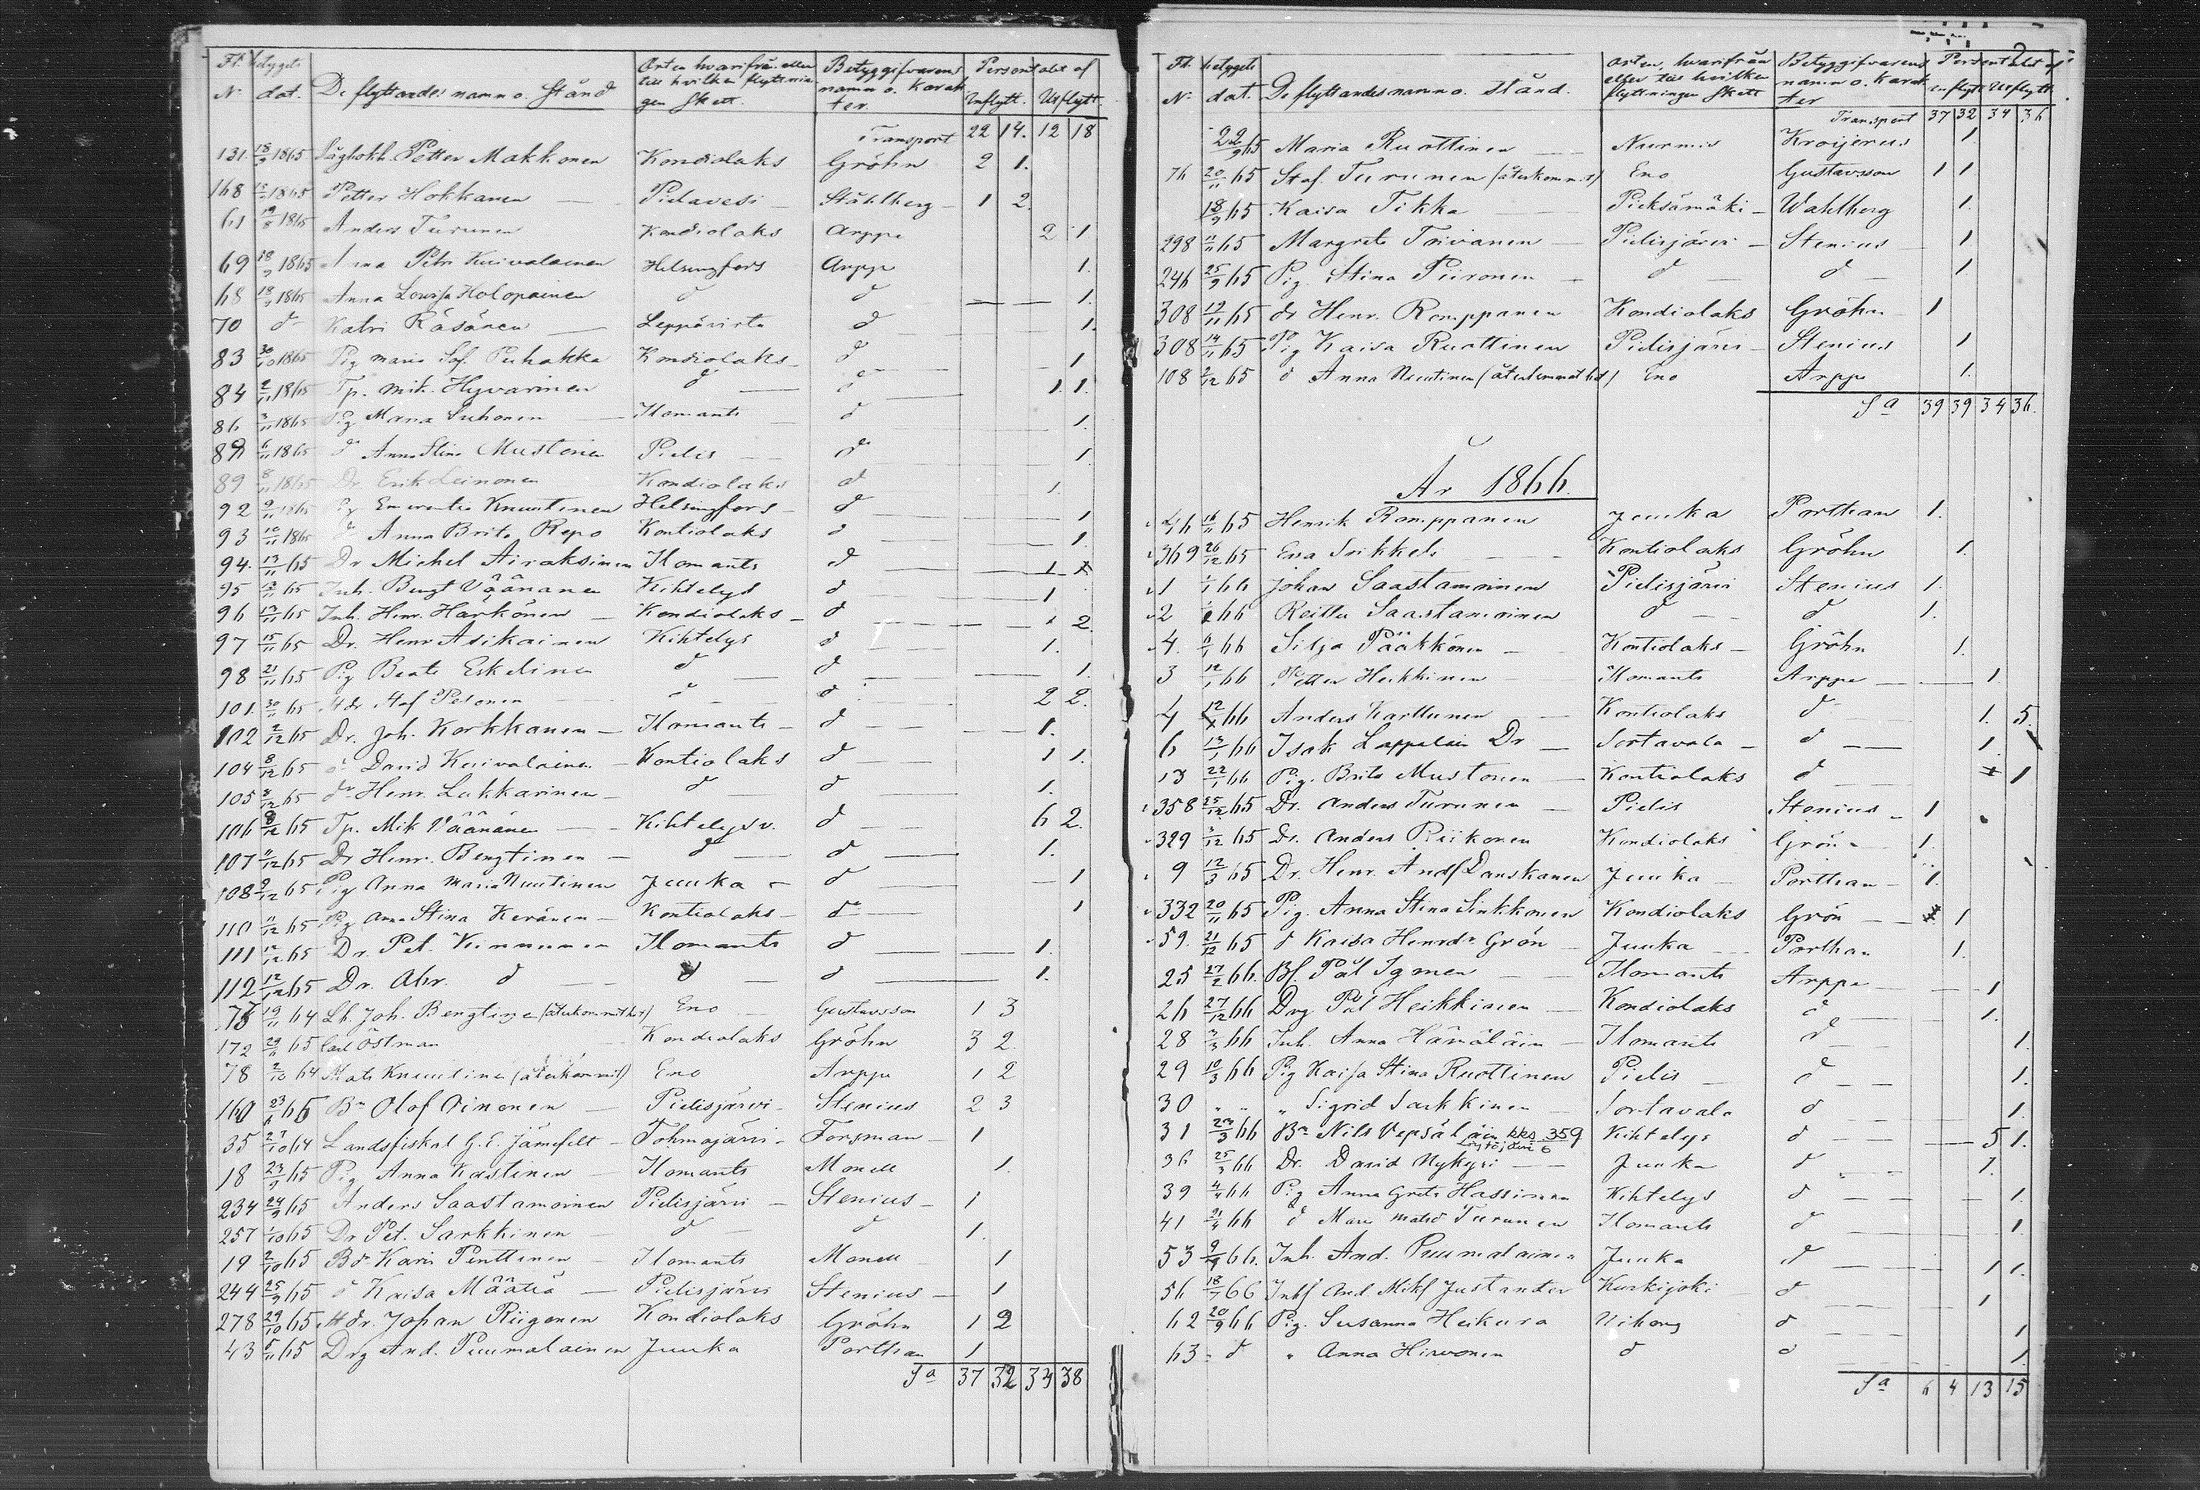 Ft. betygets De flyttandes namn o. stånd Orten hvarifrån eller Betygsgifvarens Personantalet af
till hvilken flyttnin- namn o. karak-
N. dat. gen skett. ter. Inflytt. Utflytt.
Transport 22 14. 12 18
131. 18/9 1865 Petter Makkonen Kondiolaks Gröhn 2 1.
168 1865 Petter Hokkanen Pielavesi Ståhlberg 1 2.
61 19/8 1865 Anders Turunen Kondiolaks Arppe 2 1
69 18/9 1865 Anna Petr. Kuivalainen Helsingfors Arppe 1.
68 18/9 1865 Anna Lovisa Holopainen d d 1.
70 d Katri Räsänen Leppävirta d 1.
83 30/10 1865 Pig Maria Sof. Puhakka Kondiolaks d 1
84 2/11 1865 Tp. Mik. Hyvärinen d d 1. 1.
86 3/11 1865 Pig Maria Suhonen Ilomants d 1.
89 6/11 1865 d Anna Stina Mustonen Pielis d 1
89 8/11 1865 Dr. Erik Leinonen Kondiolaks d 1.
92 9/11 1865 Pg Emerentia Knuutinen Helsingfors d 1
93 10/11 1865 d Anna Brita Repo Kontiolaks d 1.
94. 13/11 65 Dr Michel Airaksinen Ilomants d 1
95 13/11 65 Inh. Bengt Väänänen Kihtelys d 1
96 13/11 65 Inh. Henr. Harkönen Kondiolaks d 1 2.
97 15/11 65 Dr. Henr Asikainen Kihtelys d 1.
98 21/11 65 Pig Beata Eskelinen d d 1.
101. 30/11 65 Staf Pesonen d d 2 2.
102 2/12 65 Dr. Joh. Korkkanen Ilomants d 1.
104 8/12 65 d David Kuivalainen Kontiolaks d 1 1.
105 8/12 65 dr Henr. Lukkarinen d d 1.
106 8/12 65 Tp. Mik Väänänen Kihtelysv. d 6 2.
107 11/12 65 Dr Henr. Bengtinen d d 1.
108 9/12 65 Pig Anna Maria Nuutinen Juuka d 1
110 11/12 65 Pig Anna Stina Keränen Kontiolaks d 1
111 12/12 65 Dr. Pet. Kinnunen Ilomants d 1.
112 12/12 65 Dr. Abr. d d d 1.
75 19/11 64 Lh Joh. Bengtinen (återkommit hit) Eno Gustavsson 1 3
172 29/11 65 Carl Östman Kondiolaks Gröhn 3 2.
78 2/10 64 Mats Knuutinen (återkommit) Eno Arppe 1 2
160 23/6 65 Bn Olof Oinonen Pielisjärvi Stenius 2 3
35 27/10 64 Landsfiskal G. E. Järnefelt Tohmajärvi Forsman 1
18 23/9 65 Pig Anna Kastinen Ilomants Monell 1.
234 24/9 65 Anders Saastamoinen Pielisjärvi Stenius 1
257 1/10 65 Dr Pet. Sarkkinen d d 1.
19 2/10 65 Bdr Karin Penttinen Ilomants Monell 1
244 25/9 65 d Kaisa Määttä Pielisjärvi Stenius 1
278 29/10 65 dr. Johan Riigonen Kondiolaks Gröhn 1 2
43 5/11 65 Drg And. Puumalainen Juuka Porthan 1
Sa 37 32 34 38
2
Ft. betygets De flyttandes namn o. stånd. Orten, hvarifrån Betygsgifvarens Personantalet af
eller till hvilken namn o. karak-
N. dat. flyttningen skett ter Inflytt Utflytt.
Transport 37 32 34 36
22/9 65 Maria Ruottinen Nurmis Kroijerus 1.
76 20/11 65 Staf. Turunen (återkommit) Eno Gustavsson 1 1
18/9 65 Kaisa Tikka Pieksämäki Wahlberg 1.
298 11/11 65 Margreta Toivanen Pielisjärvi Stenius 1
246 25/9 65 Pig. Stina Piironen d d 1
308 19/11 65 dr Henr. Romppanen Kondiolaks Gröhn 1
308 14/11 65 Pig Kaisa Ruottinen Pielisjärvi Stenius 1
108 2/12 65 d Anna Nuutinen (återkommit hit) Eno Arppe 1.
Sa 39 39 34 36.
År 1866.
46 16/11 65 Henrik Romppanen Juuka Porthan 1.
369 26/12 65 Eva Sikkeli Kontiolaks Gröhn 1.
1 1/1 66 Johan Saastamoinen Pielisjärvi Stenius 1.
2 66 Reitta Saastamoinen d d 1.
4. 6/1 66 Silja Pääkkönen Kontiolaks Gröhn 1.
3 12/1 66 Petter Heikkinen Ilomants Arppe 1
4 12/1 66 Anders Karttunen Kontiolaks d 1. 5.
6 13/1 66 Isak Lappalain Dr Sortavala d 1.
13 22/1 66 Pig. Brita Mustonen Kontiolaks d 1
358 25/12 65 Dr. Anders Turunen Pielis Stenius 1
329 3/12 65 Dr. Anders Piikonen Kondiolaks Grön 1.
9 12/3 65 Dr. Henr. Andf Danskanen Juuka Porthan 1.
332 20/11 65 Pig. Anna Stina Sinkkonen Kondiolaks Grön 1
59. 21/12 65 d Kaisa Henrdr Grön Juuka Porthan 1.
25 27/2 66. Bf. Pål Igonen Ilomants Arppe 1
26 27/12 66 Drg Pål Heikkinen Kondiolaks d 1.
28 3/3 66 Inh. Anna Hämäläin Ilomants d 1.
29 10/3 66 Pig Kaisa Stina Ruottinen Pielis d 1.
30 " " " Sigrid Sarkkinen Sortavala d 1.
31 23/3 66 Bn Nils Vepsäläin kks 359 Kihtelys d 5 1.
36 25/3 66 Dr. David Nykyri Juuka d 1.
39 4/4 66 Pig Anna Greta Hassinen Kihtelys d 1.
41 21/4 66 d Maria Matsd Turunen Ilomants d 1
53 9/9 66. Inh. And. Puumalainen Juuka d 1 1.
56 18/9 66 Inhf And Mikf Justander Kurkijoki d 1
62 20/9 66 Pig. Susanna Heikura Viborg d 1
63 d " Anna Hirvonen d d 1.
Sa 6 4 13 15